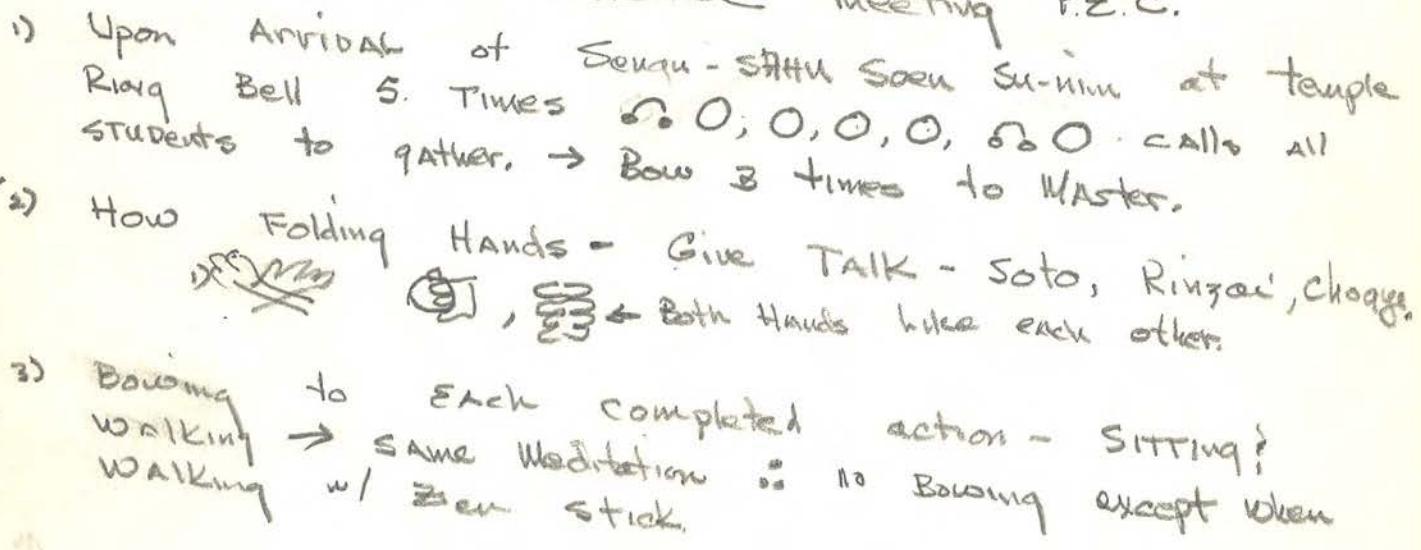 meeting P.Z.C.
1) Upon Arrival of Seung-SAHN Soen Su-nim at temple
Ring Bell 5. Times O, O, O, O, O. calls All
Students to gather. → Bow 3 times to Master.
2) How Folding Hands - Give TALK - Soto, Rinzai, Chogye.
1) , ← Both Hands like each other.
3) Bowing to Each completed action - Sitting &
Walking → same Meditation ∴ no Bowing except when
Walking w/ Zen stick.